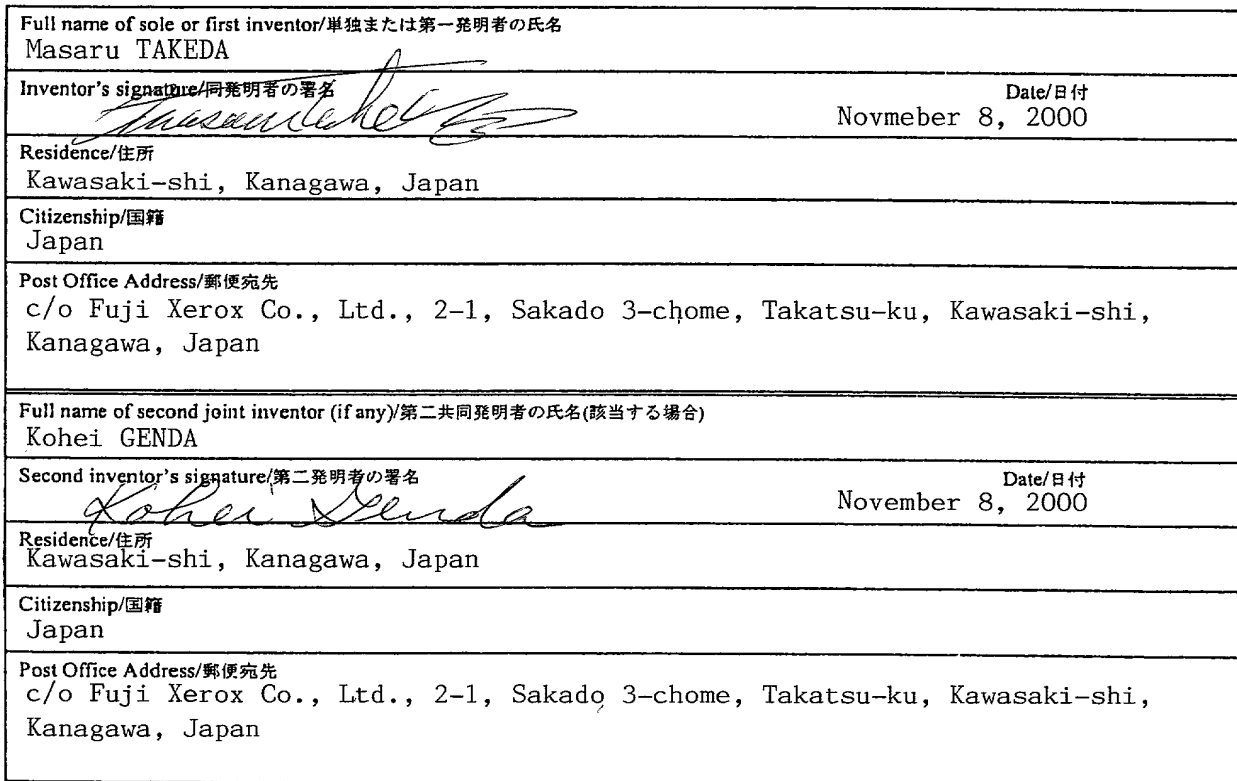 Full name of sole or first inventor/単独または第一発明者の氏名
Masaru TAKEDA
Inventor's signature/同発明者の署名 Date/日付
Novmeber 8, 2000
Residence/住所
Kawasaki-shi, Kanagawa, Japan
Citizenship/国籍
Japan
Post Office Address/郵便宛先
c/o Fuji Xerox Co., Ltd., 2-1, Sakado 3-chome, Takatsu-ku, Kawasaki-shi,
Kanagawa, Japan
Full name of second joint inventor (if any)/第二共同発明者の氏名(該当する場合)
Kohei GENDA
Second inventor's signature/第二発明者の署名 Date/日付
Kohei Genda November 8, 2000
Residence/住所
Kawasaki-shi, Kanagawa, Japan
Citizenship/国籍
Japan
Post Office Address/郵便宛先
c/o Fuji Xerox Co., Ltd., 2-1, Sakado 3-chome, Takatsu-ku, Kawasaki-shi,
Kanagawa, Japan